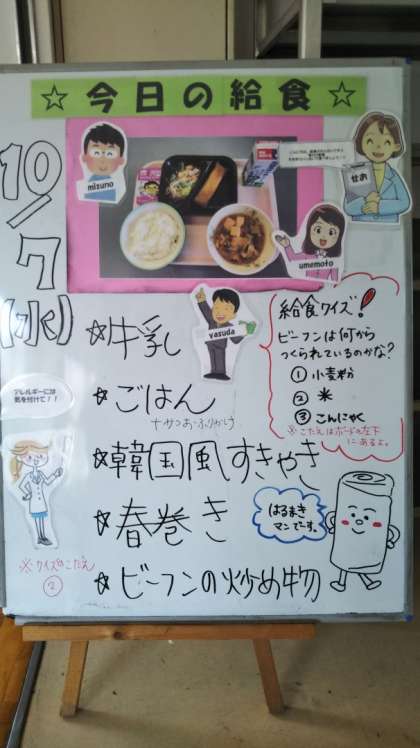 ☆今日の給食☆
10/7(水)
mizuno
せお
umemoto
yasuda
☆牛乳
☆ごはん
＋かつおふりかけ
☆韓国風すきやき
☆春巻き
☆ビーフンの炒め物
給食クイズ!
ビーフンは何から
つくられているのかな?
① 小麦粉
② 米
③ こんにゃく
※こたえはボードの左下
にあるよ。
アレルギーには
気を付けて!!
はるまき
マンです。
※クイズのこたえ
②